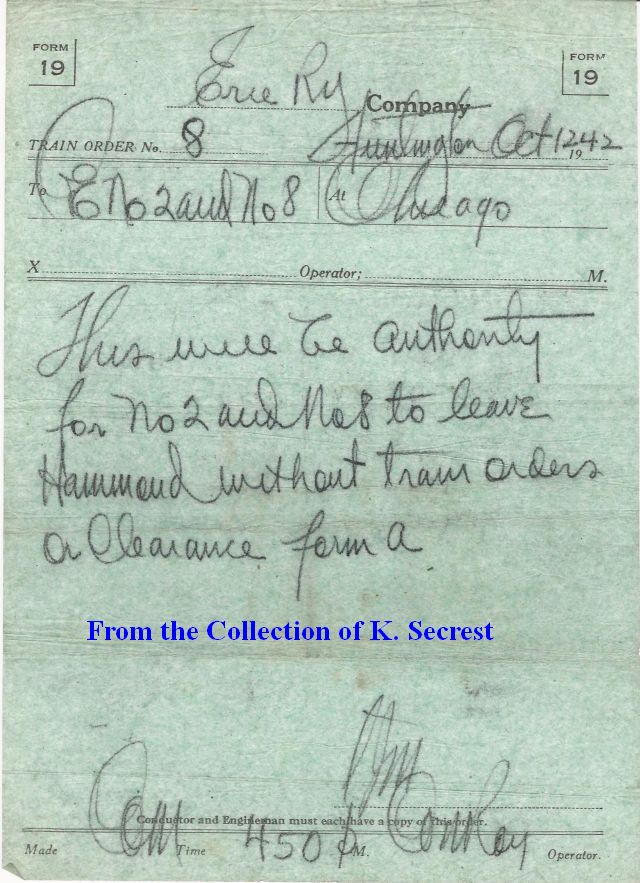 FORM 19 FORM 19
Erie Ry Company
TRAIN ORDER No. 8 Huntington Oct 12 1942
To E No 2 and No 8 At Chicago
X Operator; M.
This will be authority
for No 2 and No 8 to leave
Hammond without train orders
or Clearance form A
From the Collection of K. Secrest
Conductor and Engineman must each have a copy of this order.
Made Com Time 450 P M. Operator.